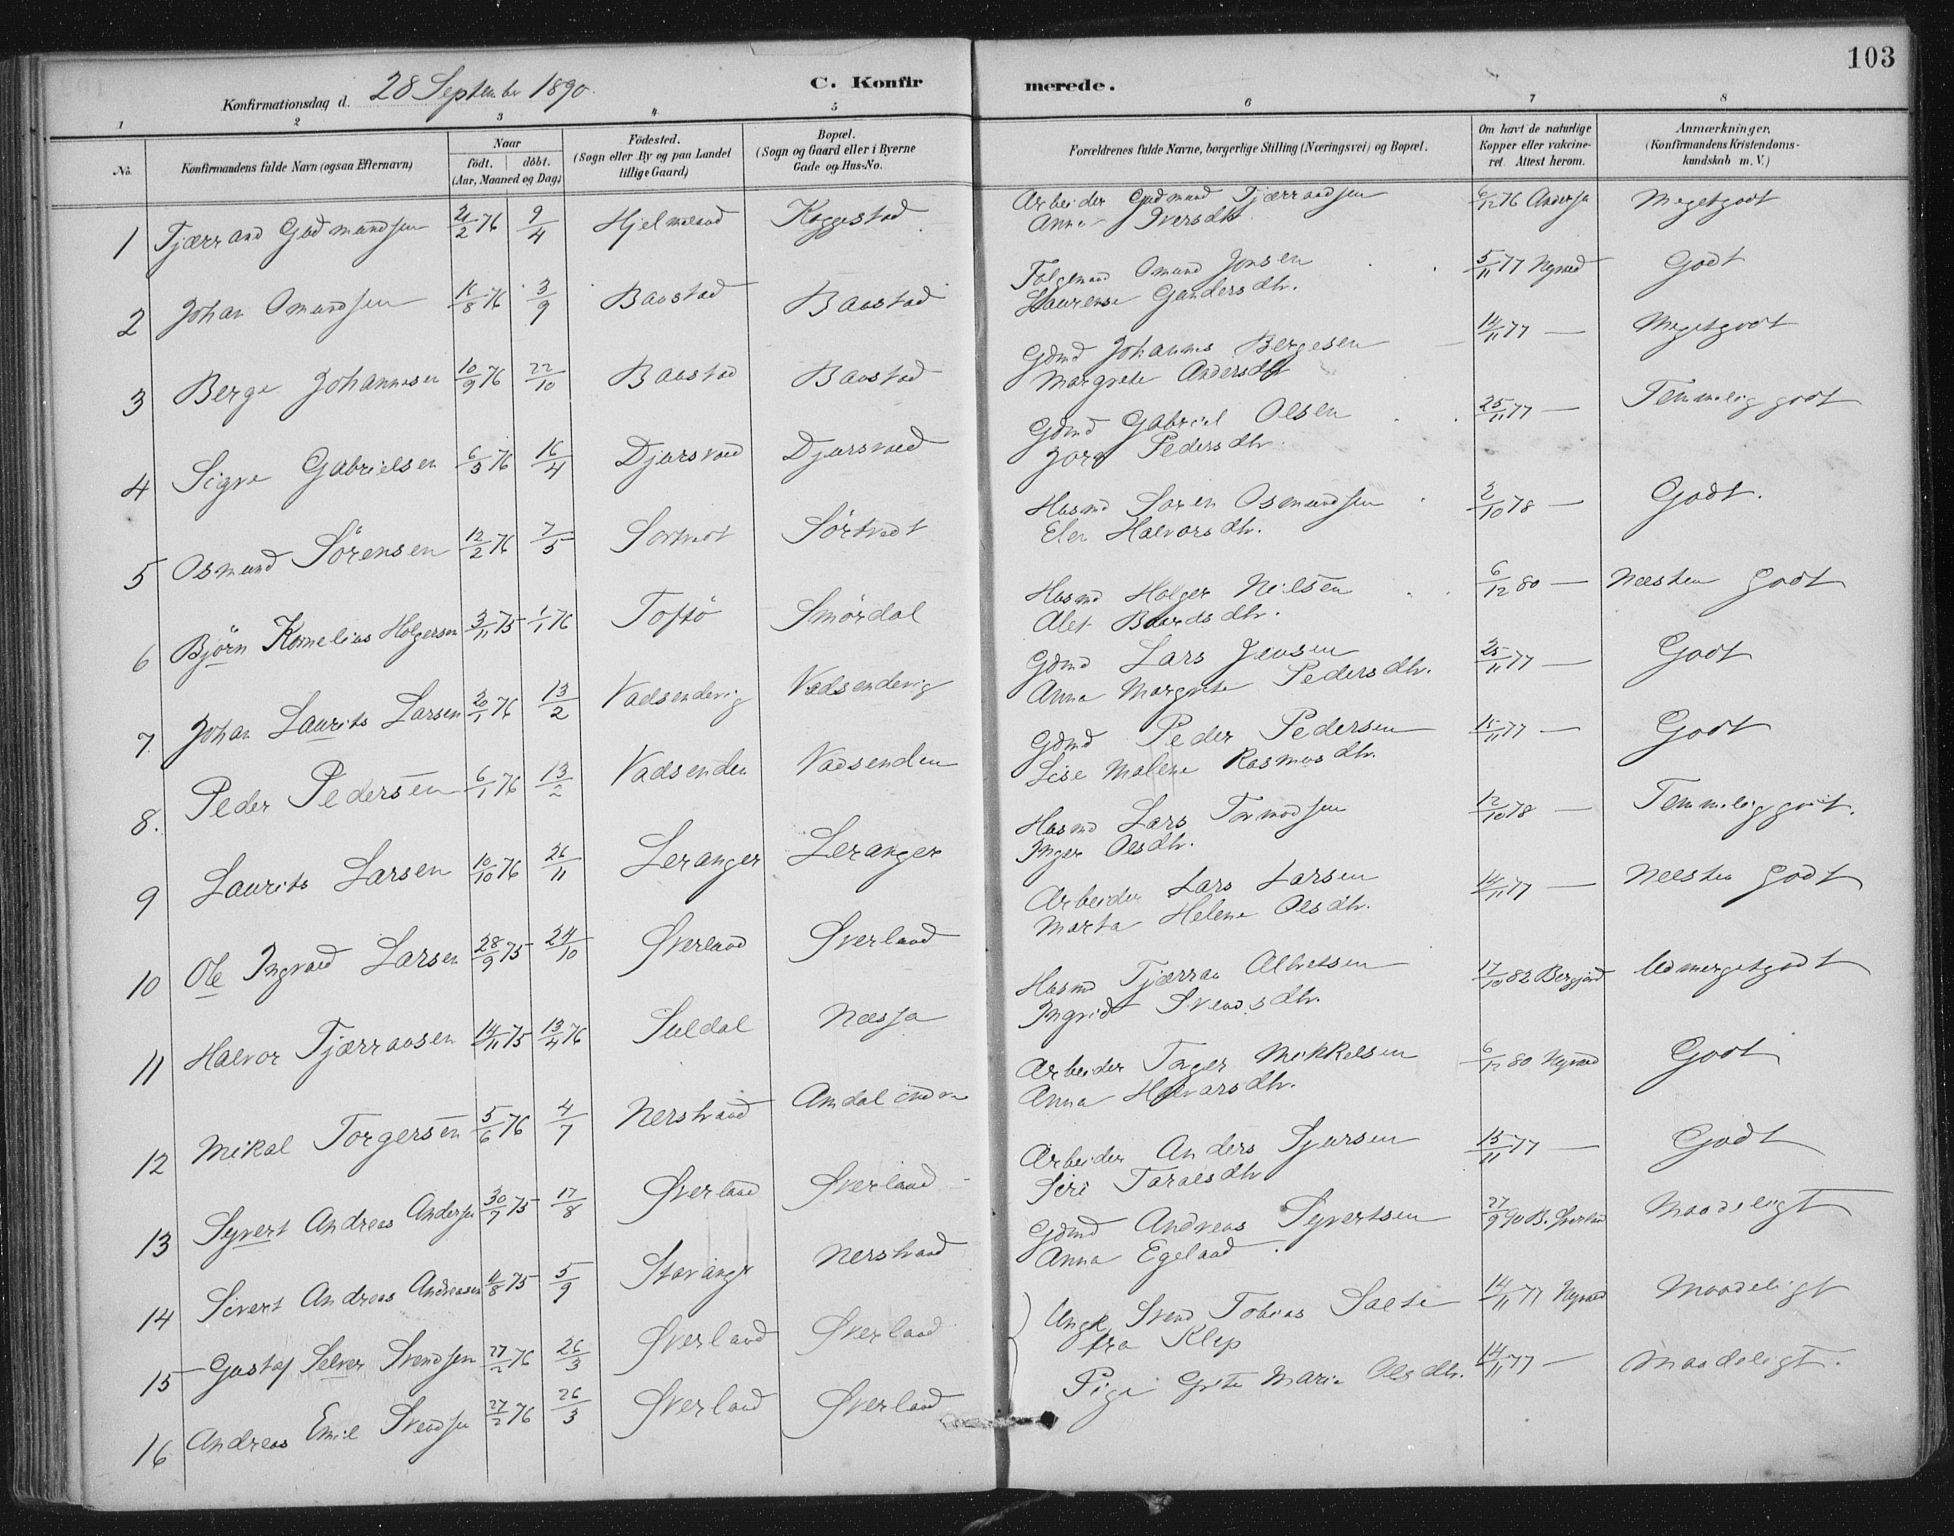 103
Konfirmationsdag d. 28 September 1890.
C. Konfirmerede.
1 2 3 4 5 6 7 8
No. Konfirmandens fulde Navn (ogsaa Efternavn) Naar födt. döbt. (Aar, Maaned og Dag) Födested. (Sogn eller By og paa Landet tillige Gaard) Bopæl. (Sogn og Gaard eller i Byerne Gade og Hus-No. Forældrenes fulde Navne, borgerlige Stilling (Næringsvei) og Bopæl. Om havt de naturlige Kopper eller vaccineret. Attest herom. Anmærkninger. (Konfirmandens Kristendomskundskab m. V.)
1 Tjærrand Gudmundsen 76 9/4 Hjelmeland Arbeider Gudmund Tjærrandsen 6/12 76 Megetgodt
Anna Iversdtr
2 Johan Omundsen 76 3/9 Baustad Baustad Omund Jonsen 5/11 77 Nyvold Godt
Laurense Gundersdtr.
3 Berge Johannesen 10/9 76 22/10 Baustad Baustad Gdmd Johannes Bergesen 14/11 77 — Megetgodt
Margrete Andersdtr
4 Sigve Gabrielsen 76 16/4 Djursvold Djursvold Gdmd Gabriel Olsen 25/11 77 — Temmelig godt
Pedersdtr.
5 Osmund Sörensen 12/2 76 7/5 Sörtvedt Husmd Sören Osmundsen 78 — Godt.
Elen Halvorsdtr.
6 Björn Kornelius Holgersen 3/11 75 1/1 76 Toftö Smördal Husmd Holger Nielsen 6/12 80 — Næsten Godt
Alet Baardsdtr.
7 Johan Laurits Larsen 20/1 76 13/2 Vadsendvig Vadsendvig Gdmd Lars Jensen 25/11 77 — Godt
Anna Margrete Pedersdtr.
8. Peder Pedersen 6/1 76 13/2 Vadsenden Vadsenden Gdmd Peder Pedersen 15/11 77 — Godt
Lise Malene Rasmusdtr.
9 Laurits Larsen 10/10 76 26/11 Leranger Leranger Husmd Lars Tormodsen 12/10 78 — Temmelig godt.
Inger Olsdtr.
10 Ole Ingvald Larsen 28/9 75 24/10 Øverland Øverland Arbeider Lars Larsen 14/11 77 — Næsten Godt
Marta Helene Olsdtr.
11 Halvor Tjærransen 14/11 75 13/4 76 Suldal Næsja Husmd Tjærran 17/10 82 Udmergetgodt
Ingrid Svendsdtr.
12 Mikal Torgersen 5/6 76 4/7 Nerstrand Amdal Arbeider Torger Mikkelsen 6/12 80 Nyvold Godt
Anna Halvorsdtr.
13 Syvert Andreas Andersen 30/7 75 17/8 Øverland Øverland Arbeider Anders Sjursen 15/11 77 — Godt
Siri Taraldsdtr
14 Sivert Andreas Andreasen 75 5/9 Stavanger Nerstrand Gdmd Andreas Syvertsen 27/9 90 Maadeligt
Anna Egeland.
15 Gustaf Selver Svendsen 27/2 76 26/3 Øverland Øverland Ungk. Svend Tobias Salte 14/11 77 Nyvold Maadeligt
fra Klep
16 Andreas Emil Svendsen 27/2 76 26/3 Øverland Øverland Pige Grete Marie Olsdtr. 14/11 77 — Maadeligt.